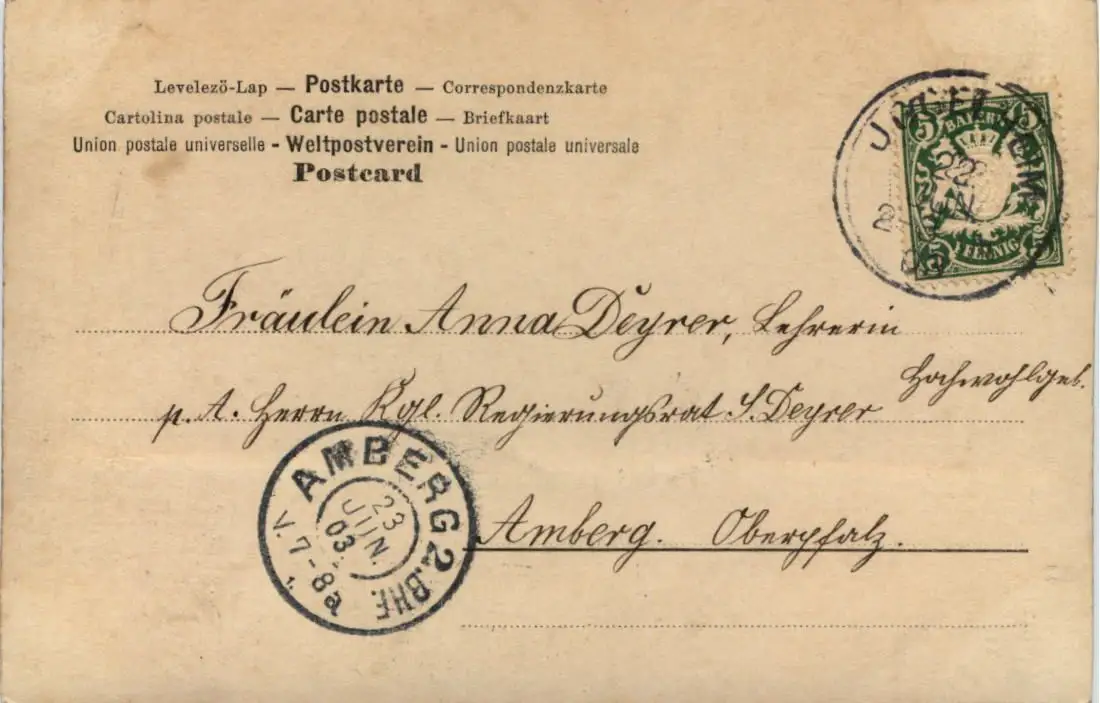 Levelező-Lap — Postkarte — Correspondenzkarte
Cartolina postale — Carte postale — Briefkaart
Union postale universelle - Weltpostverein - Union postale universale
Postcard
5 BAYERN 5
22
JUN
5 PFENNIG 5
Fräulein Anna Deyrer, Lehrerin
Hochwohlgeb.
p. A. Herrn Kgl. Regierungsrat S. Deyrer
AMBERG 2. BHF.
23
JUN
03
V. 7-8a
Amberg. Oberpfalz.